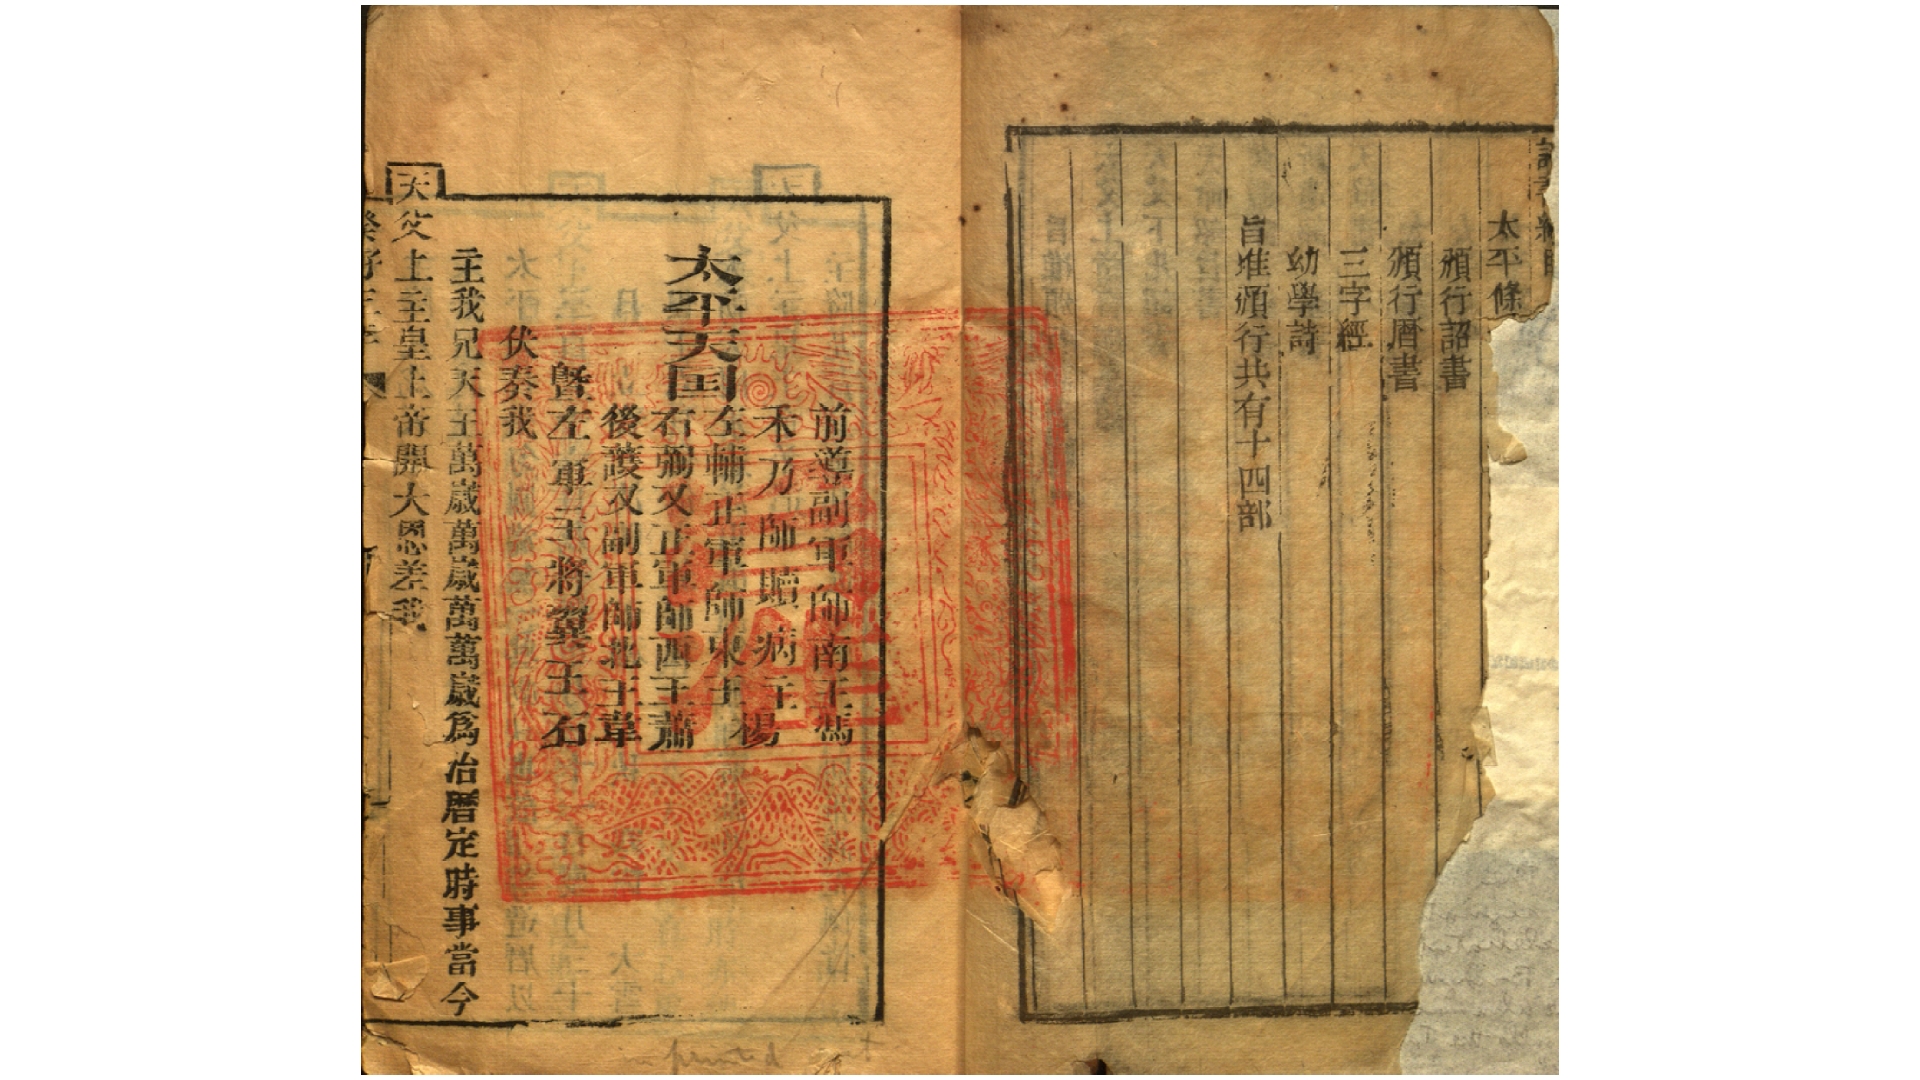 太平條
頒行詔書
頒行暦書
三字經
幼學詩
旨准頒行共有十四部
太平天囯
前導副軍師南王馮
禾乃師贖病主楊
左輔正軍師東王
右弼又正軍師西王蕭
後護又副軍師北王韋
暨左軍主將翼王石
伏奏我
主我兄天王萬歲萬歲萬萬歲爲治暦定時事當今
天父上主皇上帝開大恩差我